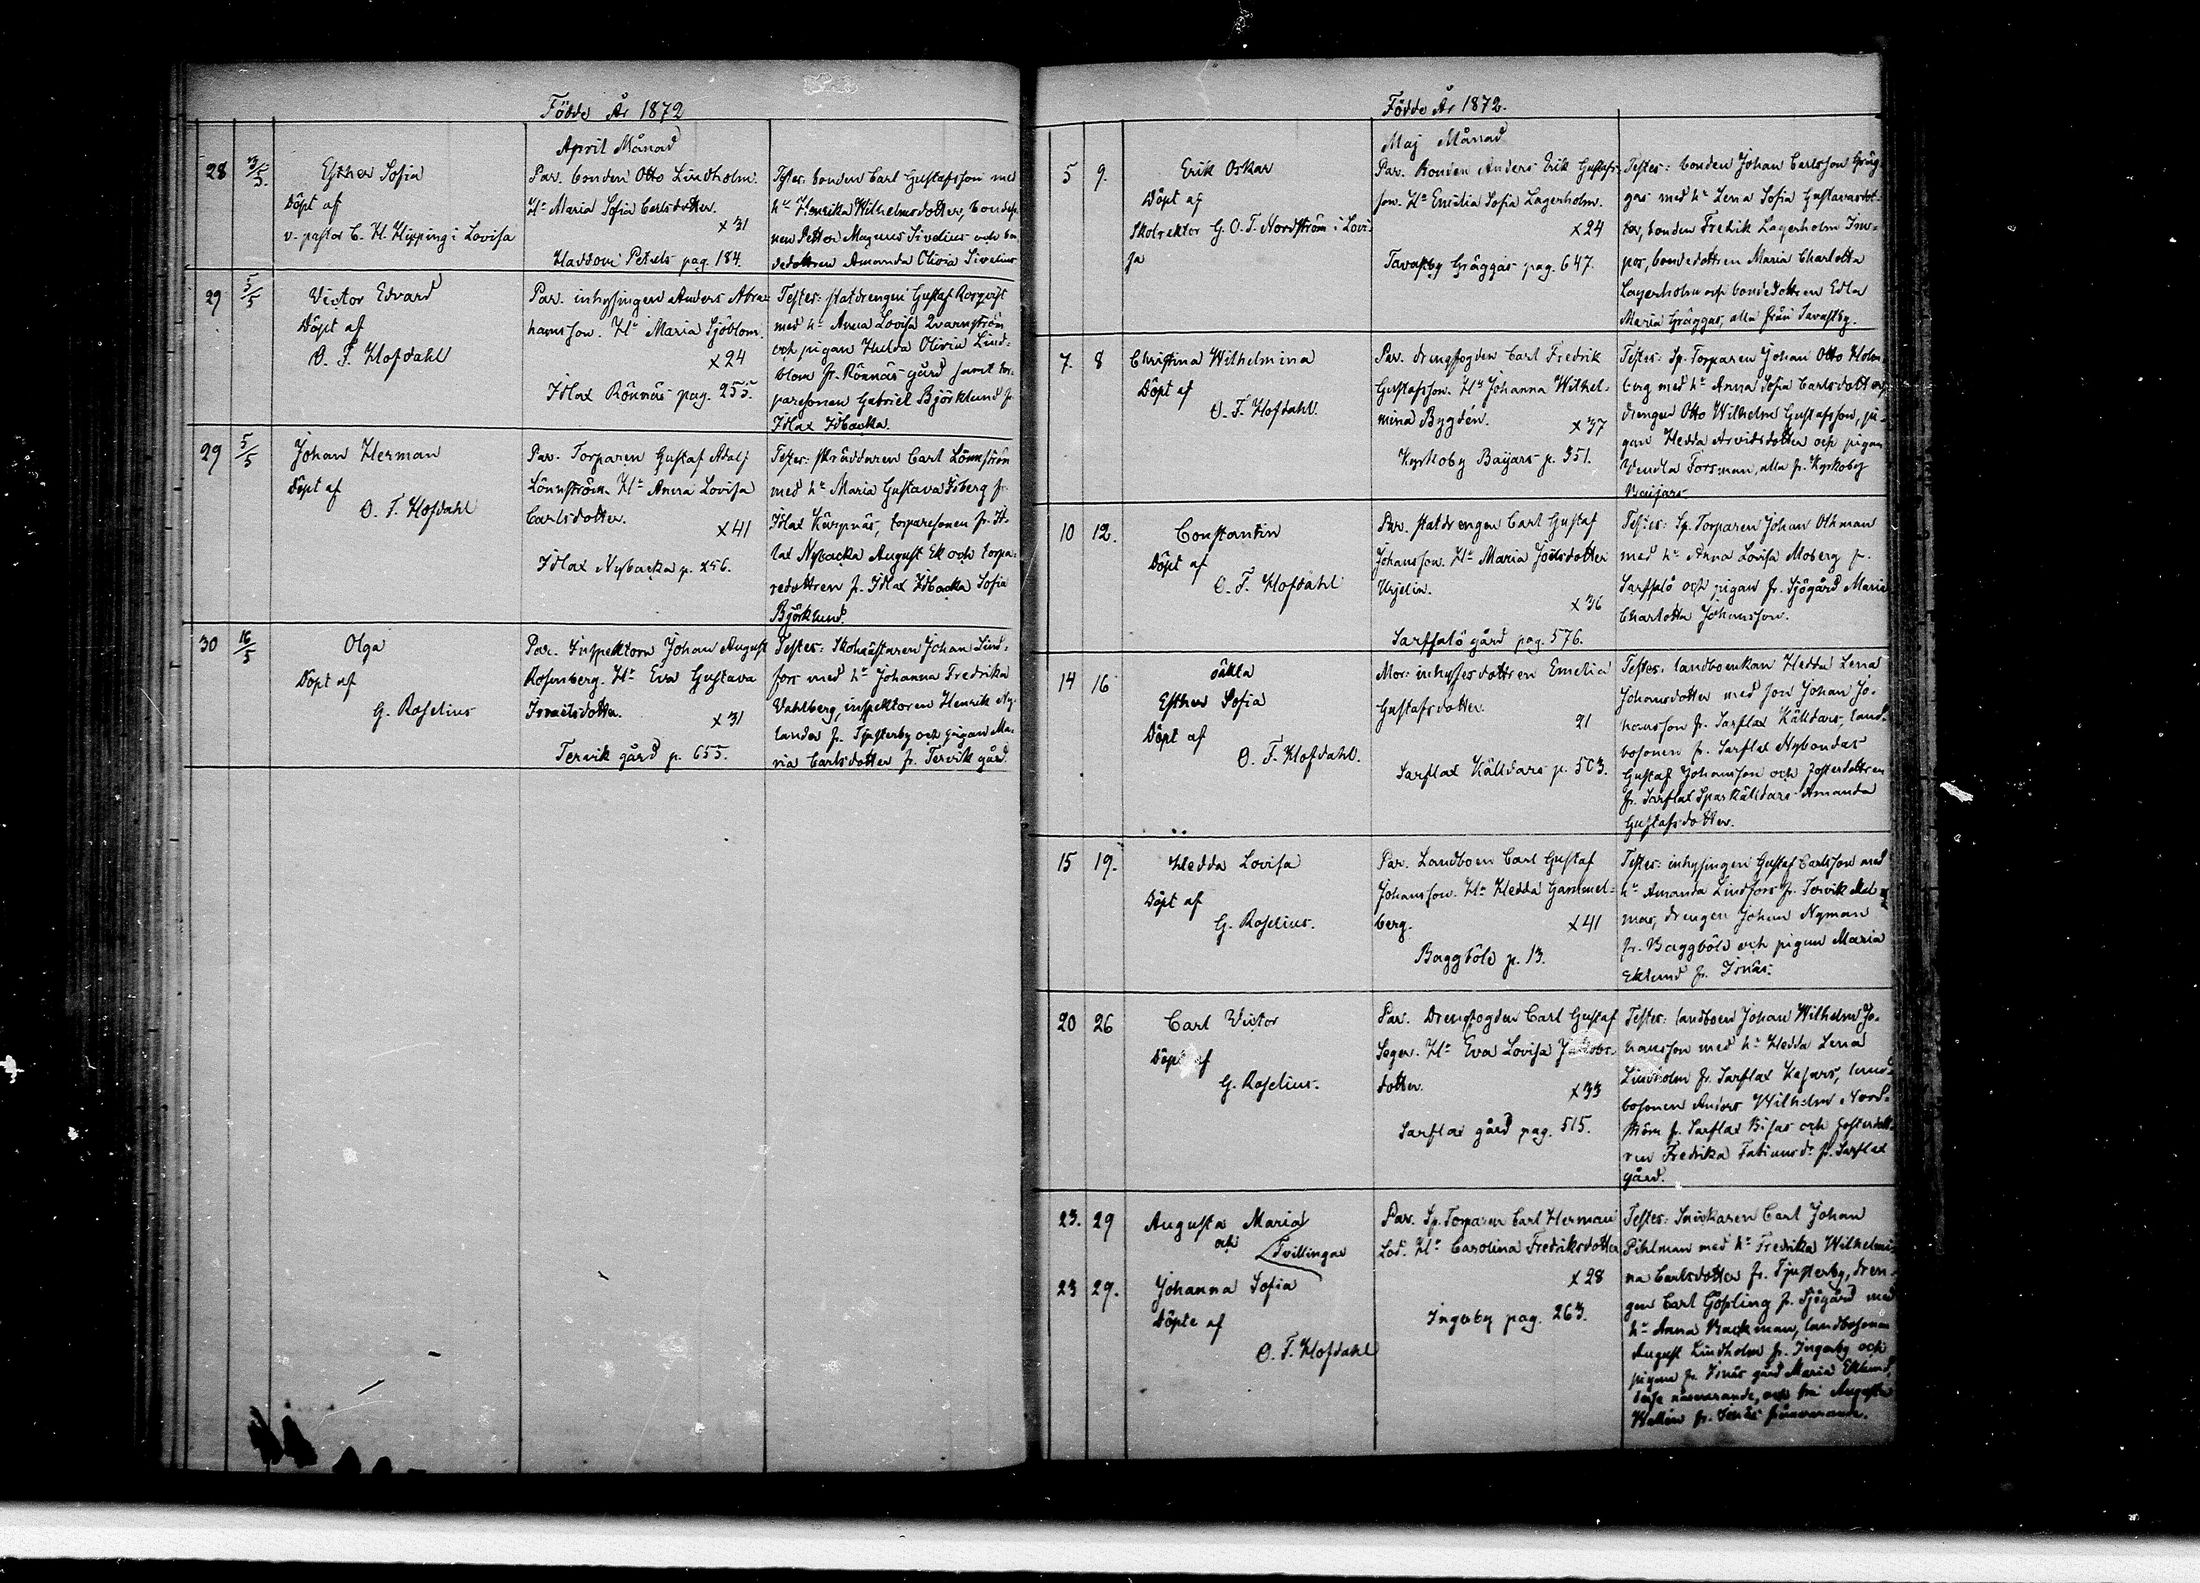 Födde År 1872
April Månad
28 3/5. Esther Sofia
Döpt af
v. pastor C. H. Hipping i Lovisa
Par. bonden Otto Lindholm.
Hu Maria Sofia Carlsdotter.
x 31
Haddom Petrels pag. 184.
Testes: bonden Carl Gustafsson med
hu Henrika Wilhelmsdotter, bondeso-
nen Petter Magnus Sivelius och bon-
dedottren Amanda Olivia Sivelius
29 5/5 Victor Edvard
Döpt af
O. F. Hofdahl
Par. inhysingen Anders Abra-
hamsson. Hu Maria Sjöblom.
x 24
Idlax Rönnäs pag. 255.
Testes: statdrengen Gustaf Rosqvist
med hu Anna Lovisa Qvarnström
och pigan Hulda Olivia Lind-
blom fr. Rönnäs gård samt tor-
paresonen Gabriel Björklund fr
Idlax Idbacka.
29 5/5 Johan Herman
Döpt af
O. F. Hofdahl
Par. Torparen Gustaf Adolf
Lönnström. Hu Anna Lovisa
Carlsdotter.
x 41
Idlax Nybacka p. 256.
Testes: skräddaren Carl Lönnström
med hu Maria Gustava Isberg fr.
Idlax Kärpnäs, torparesonen fr. Id-
lax Nybacka August Ek och torpa-
redottren fr. Idlax Idbacka Sofia
Björklund.
30 16/5 Olga
Döpt af
G. Roselius
Par. Inspektorn Johan August
Rosenberg. Hu Eva Gustava
Israelsdotter.
x 31
Tervik gård p. 655.
Testes: Skomästaren Johan Lind-
fors med hu Johanna Fredrika
Vahlberg, inspektoren Henrik Ny-
lander fr. Tjusterby och pigan Ma-
ria Carlsdotter fr. Tervik gård.
Födde År 1872.
Maj Månad
5 9. Erik Oskar
Döpt af
Skolrektor G. O. T. Nordström i Lovi-
sa
Par. Bonden Anders Erik Gustafs-
son. Hu Emilia Sofia Lagerholm.
x 24
Tavastby Gräggas pag. 647.
Testes: bonden Johan Carlsson Gräg-
gas med hu Lena Sofia Gustavasdot-
ter, bonden Fredrik Lagerholm
bondedottren Maria Charlotta
Lagerholm och bondedottren Edla
Maria Gräggas, alla från Tavastby.
7. 8 Christina Wilhelmina
Döpt af
O. F. Hofdahl.
Par. drengfogden Carl Fredrik
Gustafsson. Hu Johanna Wilhel-
mina Bygdén.
x 37
Kyrkoby Baijars p. 351.
Testes: Sp. Torparen Johan Otto Holm-
berg med hu Anna Sofia Carlsdotter,
drengen Otto Wilhelm Gustafsson, pi-
gan Hedda Arvidsdotter och pigan
Vendla Forsman, alla fr. Kyrkoby
Baijars.
10 12. Constantin
Döpt af
O. F. Hofdahl
Par. statdrengen Carl Gustaf
Johansson. Hu Maria Joelsdotter
x 36
Sarfsalö gård pag. 576.
Testes: Sp. Torparen Johan Othman
med hu Anna Lovisa Moberg fr.
Sarfsalö och pigan fr. Sjögård Maria
Charlotta Johansson.
14 16 oäkta
Esther Sofia
Döpt af
O. F. Hofdahl.
Mor: inhysesdottren Emelia
Gustafsdotter.
21
Sarflax Källdars p. 503.
Testes: landboenkan Hedda Lena
Johansdotter med son Johan Jo-
hansson fr. Sarflax Källdars, land-
bosonen fr. Sarflax Nybondas
Gustaf Johansson och fosterdottren
fr. Sarflax Sparkälldars Amanda
Gustafsdotter.
15 19. Hedda Lovisa
Döpt af
G. Roselius.
Par. Landboen Carl Gustaf
Johansson. Hu Hedda Gammel-
berg.
x 41
Baggböle p. 13.
Testes: inhysingen Gustaf Carlsson med
hu Amanda Lindfors fr. Tervik Mal-
mas, drengen Johan Nyman
fr. Baggböle och pigan Maria
Eklund fr. Isnäs.
20 26 Carl Victor
Döpt af
G. Roselius.
Par. Drengfogden Carl Gustaf
Seger. Hu Eva Lovisa Jakobs-
dotter.
x 33
Sarflax gård pag. 515.
Testes: landboen Johan Wilhelm Jo-
hansson med hu Hedda Lena
Lindholm fr. Sarflax Kasars, land-
bosonen Anders Wilhelm Nord-
ström fr. Sarflax Bisas och fosterdott-
ren Fredrika Fabiansdr fr. Sarflax
gård.
23. 29 Augusta Maria
och
Tvillingar
23 29. Johanna Sofia
Döpte af
O. F. Hofdahl
Par. Sp. Torparen Carl Herman
Lod. Hu Carolina Fredriksdotter
x 28
Ingerby pag. 263.
Testes: Snickaren Carl Johan
Pihlman med hu Fredrika Wilhelmi-
na Carlsdotter fr. Tjusterby, dren-
gen Carl Gösling fr. Sjögård med
hu Anna Backman, landbosonen
August Lindholm fr. Ingerby och
pigan fr. Isnäs gård Maria Eklund,
desse närvarande, och fru Augusta
Wallén fr. Isnäs frånvarande.